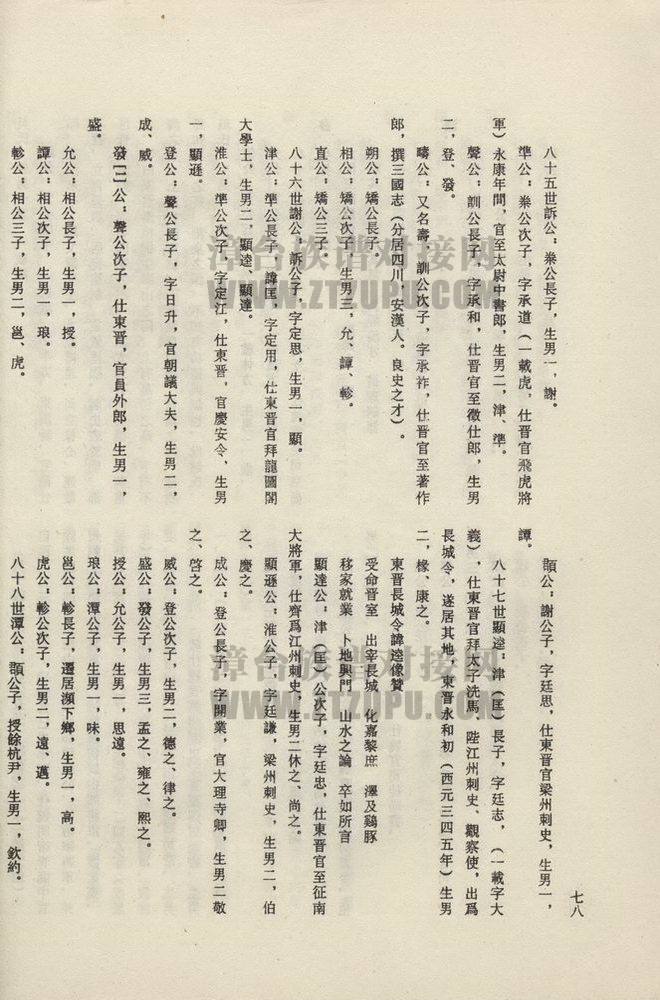 八十五世訴公：粦公長子，生男一，謝。
準公：粦公次子，字承道（一載虎，仕晋官飛虎將
軍）永康年間，官至太尉中書郎，生男二，津、準。
聲公：訓公長子，字承和，仕晋官至徵仕郎，生男
二，登、發。
疇公：又名壽，訓公次子，字承祚，仕晋官至著作
郎，撰三國志（分居四川，安漢人。良史之才）。
朔公：矯公長子。
相公：矯公次子，生男三，允、譚、軫。
直公：矯公三子。
八十六世謝公：訴公子，字定思，生男一，顯。
津公：準公長子，諱匡，字定用，仕東晋官拜龍圖閣
大學士，生男二，顯逵、顯達。
淮公：準公次子，字定江，仕東晋，官慶安令，生男
一，顯遜。
登公：聲公長子，字日升，官朝議大夫，生男二，
成、威。
發【二】公：聲公次子，仕東晋，官員外郎，生男一，
盛。
允公：相公長子，生男一，授。
譚公：相公次子，生男一，琅。
軫公：相公三子，生男二，邕、虎。
顗公：謝公子，字廷思，仕東晋官梁州刺史，生男一，
譚。
八十七世顯逵：津（匡）長子，字廷志，（一載字大
義），仕東晋官拜太子洗馬，陛江州刺史、觀察使，出爲
長城令，遂居其地，東晋永和初（西元三四五年）生男
二，椽、康之。
東晋長城令諱逵像贊
受命晋室　出宰長城　化嘉黎庶　澤及鷄豚
移家就業　卜地興門　山水之論　卒如所言
顯達公：津（匡）公次子，字廷忠，仕東晋官至征南
大將軍，仕齊爲江州刺史，生男二休之、尚之。
顯遜公：淮公子，字廷謙，梁州刺史，生男二，伯
之、慶之。
成公：登公長子，字開業，官大理寺卿，生男二敬
之、啓之。
威公：登公次子，生男二，德之、律之。
盛公：發公子，生男三，孟之、雍之、熙之。
授公：允公子，生男一，思遠。
琅公：潭公子，生男一，味。
邕公：軫長子，遷居瀕下鄉，生男一，高。
虎公：軫公次子，生男二，遠、邁。
八十八世潭公：顗公子，授餘杭尹，生男一，欽約。
七八
漳台族谱对接网
WWW.ZTZUPU.COM
漳台族谱对接网
WWW.ZTZUPU.COM